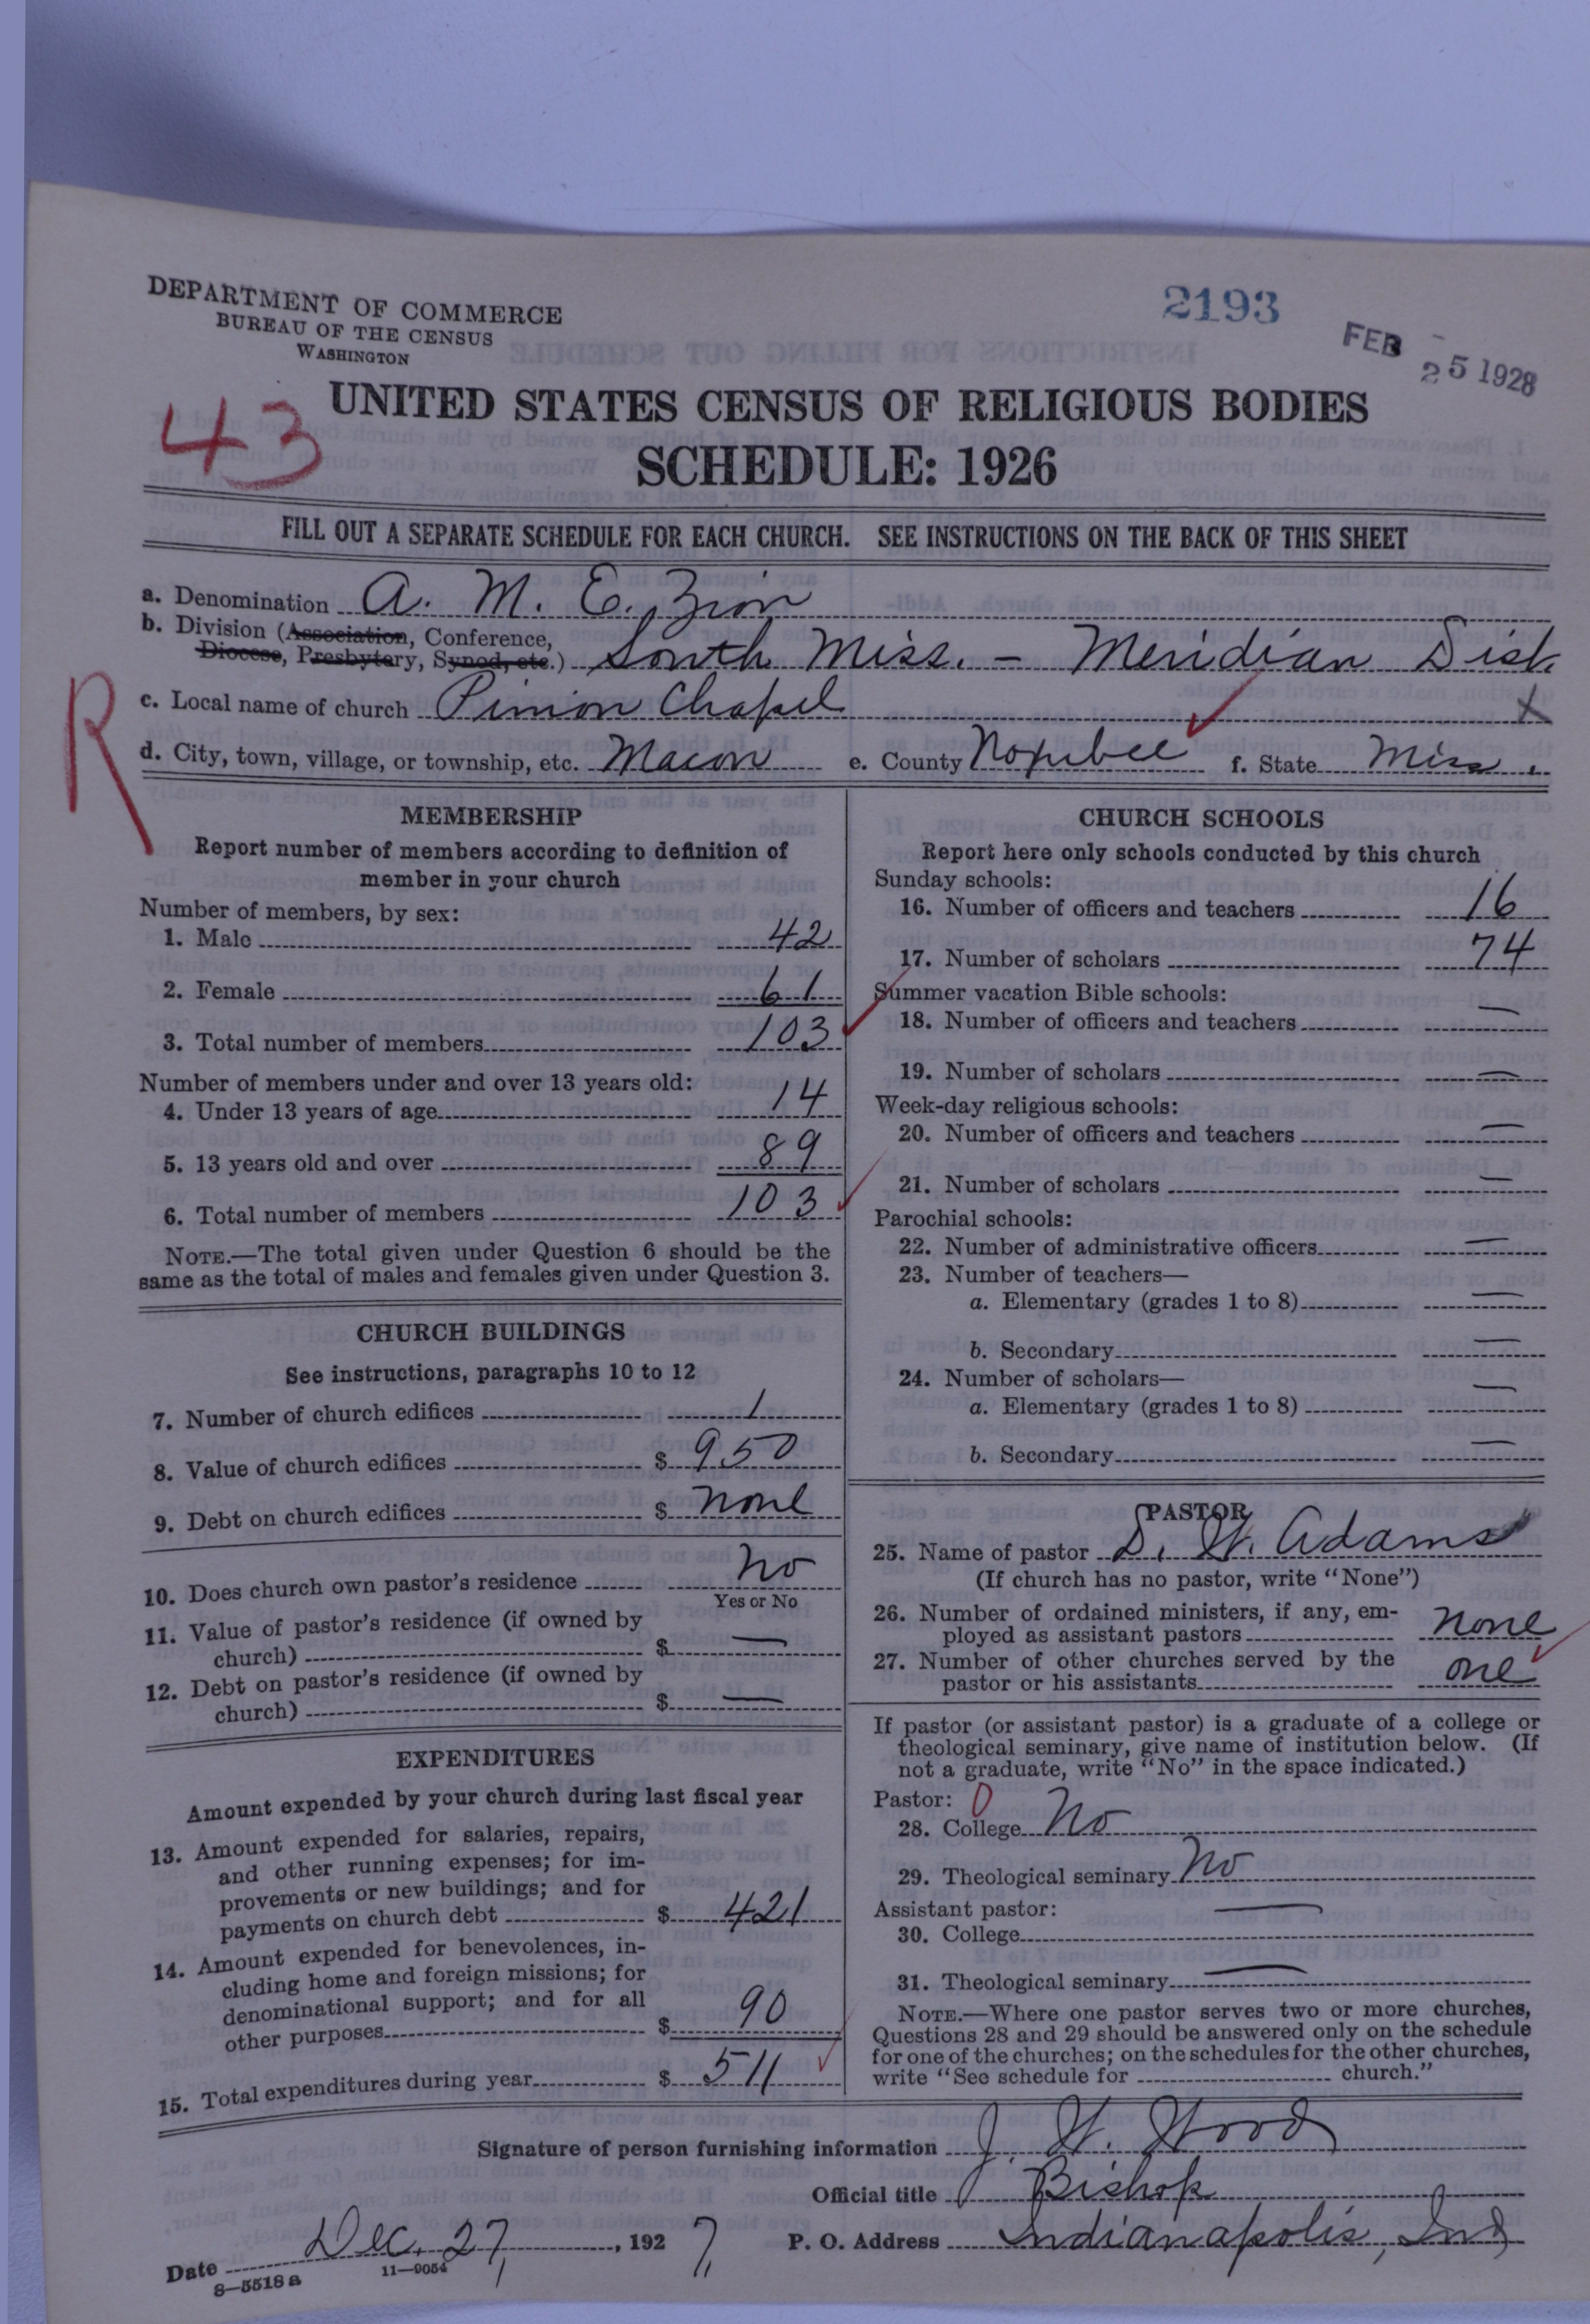 DEPARTMENT OF COMMERCE
BUREAU OF THE CENSUS
WASHINGTON
2193
FEB 25 1928
43
UNITED STATES CENSUS OF RELIGIOUS BODIES
SCHEDULE: 1926
FILL OUT A SEPARATE SCHEDULE FOR EACH CHURCH. SEE INSTRUCTIONS ON THE BACK OF THIS SHEET
a. Denomination A. M. E. Zion
b. Division (Association, Conference,
Diocese, Presbytery, Synod, etc.) South Miss. – Meridian Dist
R
c. Local name of church Pinion Chapel X
d. City, town, village, or township, etc. Macon e. County Noxubee f. State Miss.
MEMBERSHIP
Report number of members according to definition of
member in your church
Number of members, by sex:
1. Male 42
2. Female 61
3. Total number of members 103
Number of members under and over 13 years old:
4. Under 13 years of age 14
5. 13 years old and over 89
6. Total number of members 103
NOTE.—The total given under Question 6 should be the
same as the total of males and females given under Question 3.
CHURCH BUILDINGS
See instructions, paragraphs 10 to 12
7. Number of church edifices 1
8. Value of church edifices $ 950
9. Debt on church edifices $ none
10. Does church own pastor's residence No
Yes or No
11. Value of pastor's residence (if owned by
church) $ —
12. Debt on pastor's residence (if owned by
church) $ —
EXPENDITURES
Amount expended by your church during last fiscal year
13. Amount expended for salaries, repairs,
and other running expenses; for im-
provements or new buildings; and for
payments on church debt $ 421
14. Amount expended for benevolences, in-
cluding home and foreign missions; for
denominational support; and for all
other purposes $ 90
15. Total expenditures during year $ 511
CHURCH SCHOOLS
Report here only schools conducted by this church
Sunday schools:
16. Number of officers and teachers 16
17. Number of scholars 74
Summer vacation Bible schools:
18. Number of officers and teachers —
19. Number of scholars —
Week-day religious schools:
20. Number of officers and teachers —
21. Number of scholars —
Parochial schools:
22. Number of administrative officers —
23. Number of teachers—
a. Elementary (grades 1 to 8) —
b. Secondary —
24. Number of scholars—
a. Elementary (grades 1 to 8) —
b. Secondary —
PASTOR
25. Name of pastor D. W. Adams
(If church has no pastor, write "None")
26. Number of ordained ministers, if any, em-
ployed as assistant pastors none
27. Number of other churches served by the
pastor or his assistants one
If pastor (or assistant pastor) is a graduate of a college or
theological seminary, give name of institution below. (If
not a graduate, write "No" in the space indicated.)
Pastor: 0
28. College No
29. Theological seminary No
Assistant pastor:
30. College —
31. Theological seminary —
NOTE.—Where one pastor serves two or more churches,
Questions 28 and 29 should be answered only on the schedule
for one of the churches; on the schedules for the other churches,
write "See schedule for church."
Signature of person furnishing information J. W. Wood
Official title Bishop
Date Dec. 27, 1927, P. O. Address Indianapolis, Ind
8—5518 a 11—9054